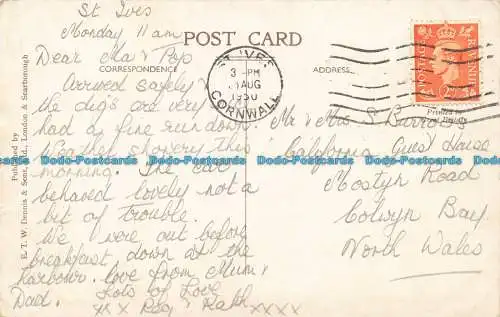 St Ives
Monday 11am
POST CARD
Dear Ma & Pop
CORRESPONDENCE
ADDRESS
Arrived safely
the digs are very
had a fine run down
Weather showery this
morning. The car
behaved lovely not a
bit of trouble.
We were out before
breakfast, down at the
harbour. love from Mum,
Dad. Lots of Love
xxx Reg Kath xxxx
ST. IVES
3 - PM
AUG
1950
CORNWALL
POSTAGE
REVENUE
Printed in
Mr & Mrs S Burrows
California Guest House
Mostyn Road
Colwyn Bay
North Wales
Published by
E. T. W. Dennis & Sons, Ltd., London & Scarborough
Dodo-Postcards Dodo-Postcards Dodo-Postcards Dodo-Postcards Dodo-Postcards